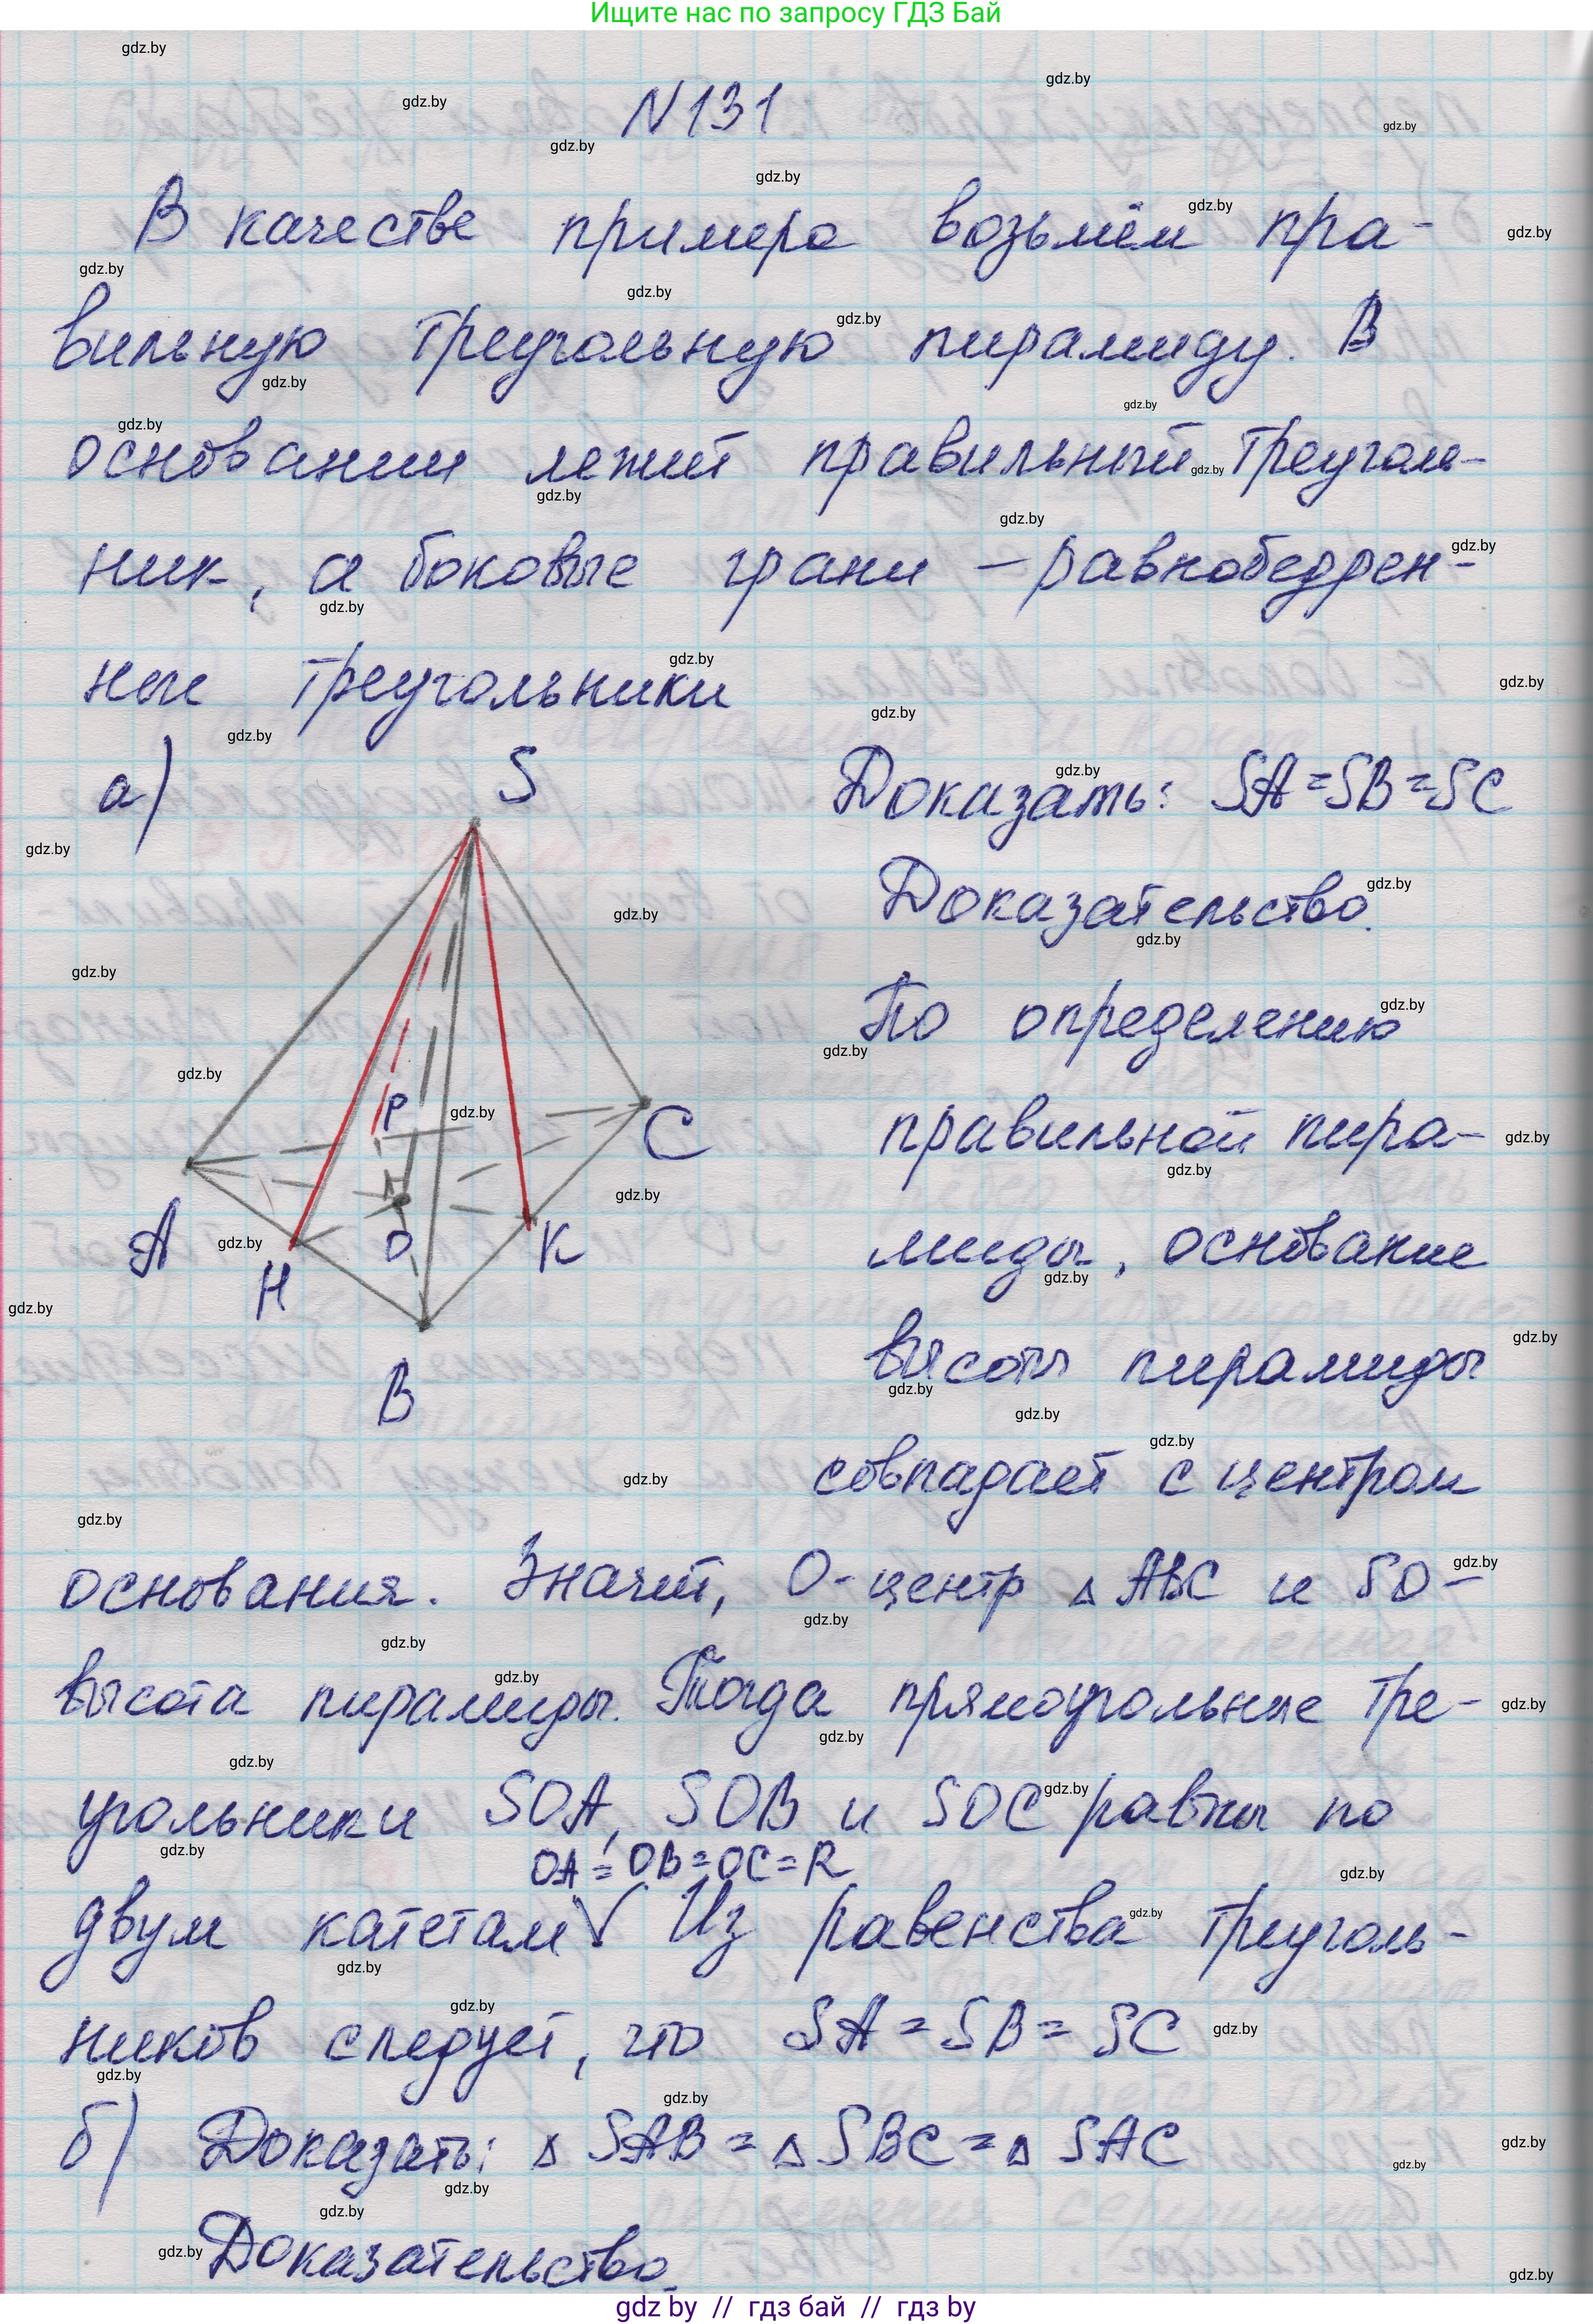 Ищите нас по запросу ГДЗ Бай
N 131
В качестве примера возьмём пра-
вильную треугольную пирамиду. В
основании лежит правильный треуголь-
ник, а боковые грани – равнобедрен-
ные треугольники
а)
S
P
C
A
H
O
K
B
Доказать: SA = SB = SC
Доказательство.
По определению
правильной пира-
миды, основание
высоты пирамиды
совпадает с центром
основания. Значит, O - центр △ ABC и SO -
высота пирамиды. Тогда прямоугольные тре-
угольники SOA, SOB и SOC равны по
OA = OB = OC = R
двум катетам √ Из равенства треуголь-
ников следует, что SA = SB = SC
б) Доказать: △ SAB = △ SBC = △ SAC
Доказательство.
gdz by // гдз бай // гдз by